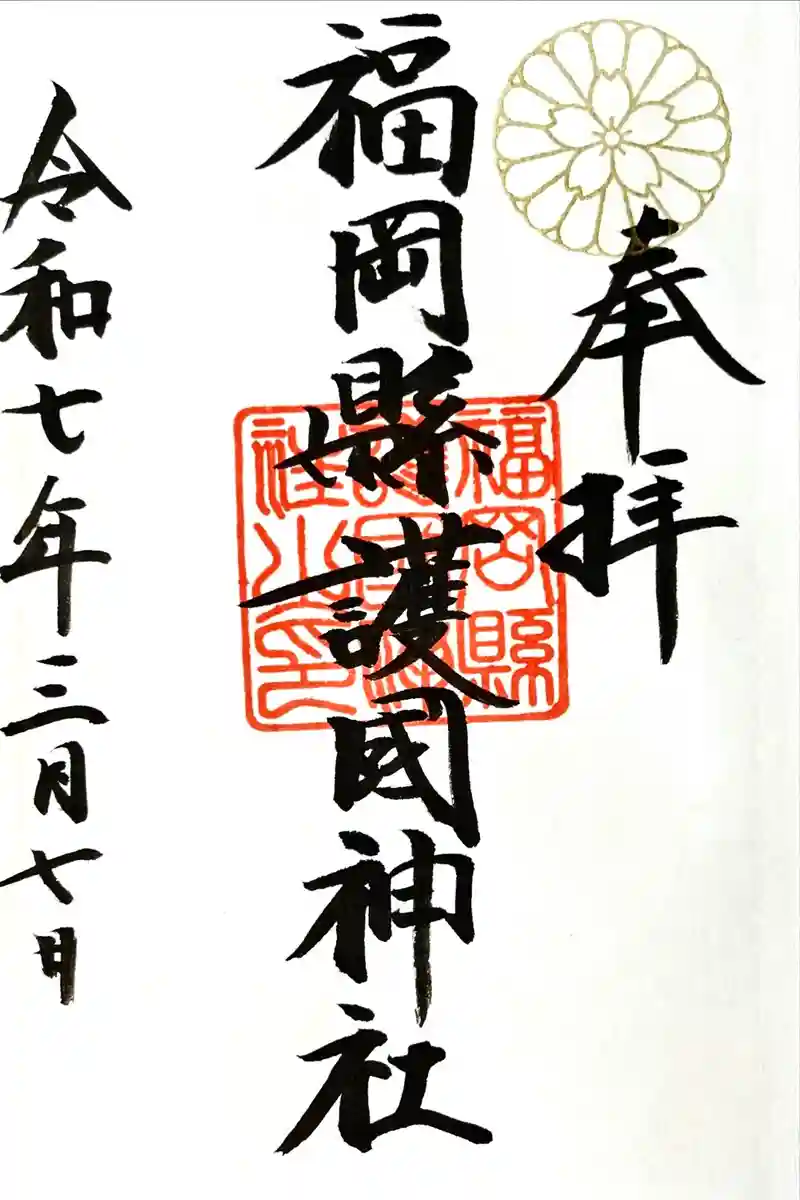 奉拝
福岡縣護國神社
福岡縣
護国神
社之印
令和七年三月七日